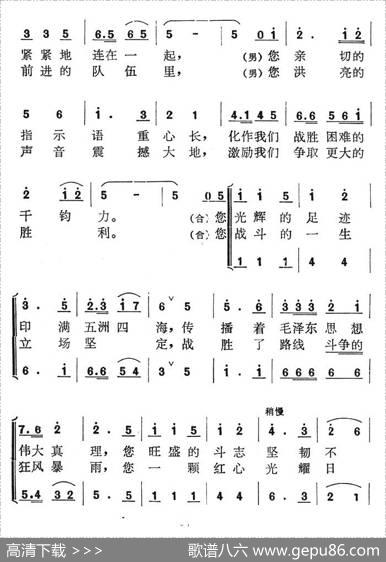 3 3 5 6.5 65 5 - 5 0 5 0 i 2. i 2
紧紧地 连在一 起, (男)您 亲 切的
前进的 队伍里, (男)您 洪 亮的
5 6 i. 3 2 1 4.1 45 6.6 5 6 i
指示 语重心长, 化作我们 战胜困难的
声音 震撼大地, 激励我们 争取更大的
2 i 2 2 - 5 0 5 i i 5 i 2
千钧 力。 (合)您 光辉的 足迹
胜利。 (合)您 战斗的 一生
1 1 1 4 4
3. 5 2.3 i 7 6 5 5. 6 3 3 3 2 i
印满 五洲四海, 传播着 毛泽东思想
立场坚定, 战胜了 路线斗争的
6. i 6.6 5 4 3 5 i. i 6 6 6 6 6
稍慢
7.6 2 2. 2 i i 5 4. 3 2 6
伟大真理, 您旺盛的斗志坚韧不
狂风暴雨, 您一颗红心光耀日
5.4 3 2 5. 5 i i 5 4. 3 2 6
高清下载 >>> 歌谱八六 www.gepu86.com